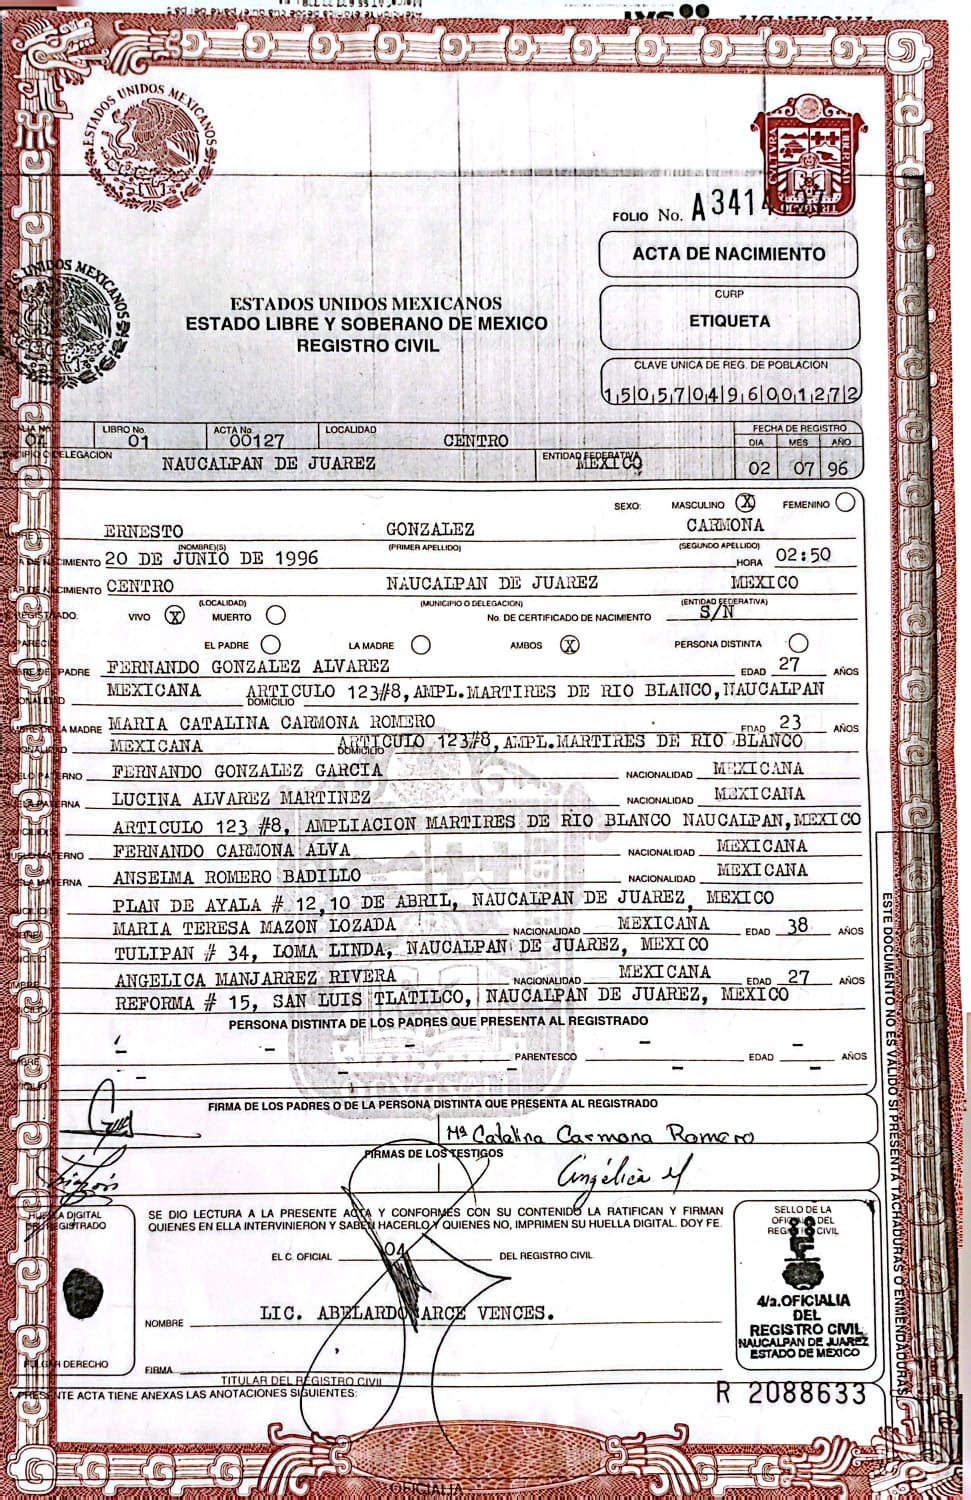 ESTADOS UNIDOS MEXICANOS
LIBERTAD
FOLIO No. A3414
ACTA DE NACIMIENTO
UNIDOS MEXICANOS
CURP
ETIQUETA
ESTADOS UNIDOS MEXICANOS
ESTADO LIBRE Y SOBERANO DE MEXICO
REGISTRO CIVIL
CLAVE UNICA DE REG. DE POBLACION
150570496001272
LIBRO No. ACTA No. LOCALIDAD FECHA DE REGISTRO
04 01 00127 CENTRO DIA MES AÑO
DELEGACION NAUCALPAN DE JUAREZ ENTIDAD FEDERATIVA MEXICO 02 07 96
SEXO: MASCULINO X FEMENINO
ERNESTO GONZALEZ CARMONA
(NOMBRE(S) (PRIMER APELLIDO) (SEGUNDO APELLIDO)
CIMIENTO 20 DE JUNIO DE 1996 HORA 02:50
CIMIENTO CENTRO NAUCALPAN DE JUAREZ MEXICO
(LOCALIDAD) (MUNICIPIO O DELEGACION) (ENTIDAD FEDERATIVA)
VIVO X MUERTO No. DE CERTIFICADO DE NACIMIENTO S/N
EL PADRE LA MADRE AMBOS X PERSONA DISTINTA
PADRE FERNANDO GONZALEZ ALVAREZ EDAD 27 AÑOS
MEXICANA DOMICILIO ARTICULO 123#8, AMPL.MARTIRES DE RIO BLANCO, NAUCALPAN
LA MADRE MARIA CATALINA CARMONA ROMERO EDAD 23 AÑOS
MEXICANA DOMICILIO ARTICULO 123#8, AMPL.MARTIRES DE RIO BLANCO
FERNANDO GONZALEZ GARCIA NACIONALIDAD MEXICANA
LUCINA ALVAREZ MARTINEZ NACIONALIDAD MEXICANA
ARTICULO 123 #8, AMPLIACION MARTIRES DE RIO BLANCO NAUCALPAN, MEXICO
FERNANDO CARMONA ALVA NACIONALIDAD MEXICANA
ANSELMA ROMERO BADILLO NACIONALIDAD MEXICANA
PLAN DE AYALA # 12, 10 DE ABRIL, NAUCALPAN DE JUAREZ, MEXICO
MARIA TERESA MAZON LOZADA NACIONALIDAD MEXICANA EDAD 38 AÑOS
TULIPAN # 34, LOMA LINDA, NAUCALPAN DE JUAREZ, MEXICO
ANGELICA MANJARREZ RIVERA NACIONALIDAD MEXICANA EDAD 27 AÑOS
REFORMA # 15, SAN LUIS TLATILCO, NAUCALPAN DE JUAREZ, MEXICO
PERSONA DISTINTA DE LOS PADRES QUE PRESENTA AL REGISTRADO
PARENTESCO EDAD AÑOS
FIRMA DE LOS PADRES O DE LA PERSONA DISTINTA QUE PRESENTA AL REGISTRADO
Mª Catalina Carmona Romero
FIRMAS DE LOS TESTIGOS
Angélica M
HUELLA DIGITAL
DEL REGISTRADO
SE DIO LECTURA A LA PRESENTE ACTA Y CONFORMES CON SU CONTENIDO LA RATIFICAN Y FIRMAN
QUIENES EN ELLA INTERVINIERON Y SABEN HACERLO Y QUIENES NO, IMPRIMEN SU HUELLA DIGITAL. DOY FE.
SELLO DE LA
OFICIALIA DEL
REGISTRO CIVIL
EL C. OFICIAL 04 DEL REGISTRO CIVIL
4/a.OFICIALIA
DEL
REGISTRO CIVIL
NAUCALPAN DE JUAREZ
ESTADO DE MEXICO
NOMBRE LIC. ABELARDO ARCE VENCES.
PULGAR DERECHO
FIRMA
TITULAR DEL REGISTRO CIVIL
PRESENTE ACTA TIENE ANEXAS LAS ANOTACIONES SIGUIENTES:
R 2088633
ESTE DOCUMENTO NO ES VALIDO SI PRESENTA TACHADURAS O ENMENDADURAS
OFICIALIA